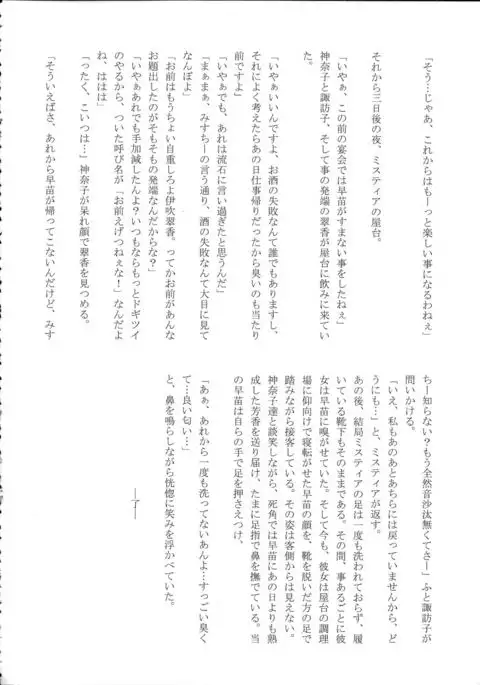 「そう…じゃあ、これからはもーっと楽しい事になるわねぇ」
それから三日後の夜、ミスティアの屋台。
「いやぁ、この前の宴会では早苗がすまない事をしたねぇ」
神奈子と諏訪子、そして事の発端の翠香が屋台に飲みに来てい
た。
「いやぁいいんですよ、お酒の失敗なんて誰でもありますし、
それによく考えたらあの日仕事帰りだったから臭いのも当たり
前ですよ」
「いやぁでも、あれは流石に言い過ぎたと思うんだ」
「まぁまぁ、みすちーの言う通り、酒の失敗なんて大目に見て
なんぼよ」
「お前はもうちょい自重しろよ伊吹翠香。ってかお前があんな
お題出したのがそもそもの発端なんだからな？」
「いやぁあれでも手加減したんよ？いつもならもっとドギツイ
のやるから、ついた呼び名が「お前えげつねぇな！」なんだよ
ね、ははは」
「ったく、こいつは…」神奈子が呆れ顔で翠香を見つめる。
「そういえばさ、あれから早苗が帰ってこないんだけど、みす
ちー知らない？もう全然音沙汰無くてさー」ふと諏訪子が
問いかける。
「いえ、私もあのあとあちらには戻っていませんから、ど
うにも…」と、ミスティアが返す。
あの後、結局ミスティアの足は一度も洗われておらず、履
いている靴下もそのままである。その間、事あるごとに彼
女は早苗に嗅がせていた。そして今も、彼女は屋台の調理
場に仰向けで寝転がせた早苗の顔を、靴を脱いだ方の足で
踏みながら接客している。その姿は客側からは見えない。
神奈子達と談笑しながら、死角では早苗にあの日よりも熟
成した芳香を送り届け、たまに足指で鼻を撫でている。当
の早苗は自らの手で足を押さえつけ、
「あぁ、あれから一度も洗ってないあんよ…すっごい臭く
て…良い匂い…」
と、鼻を鳴らしながら恍惚に笑みを浮かべていた。
―了―